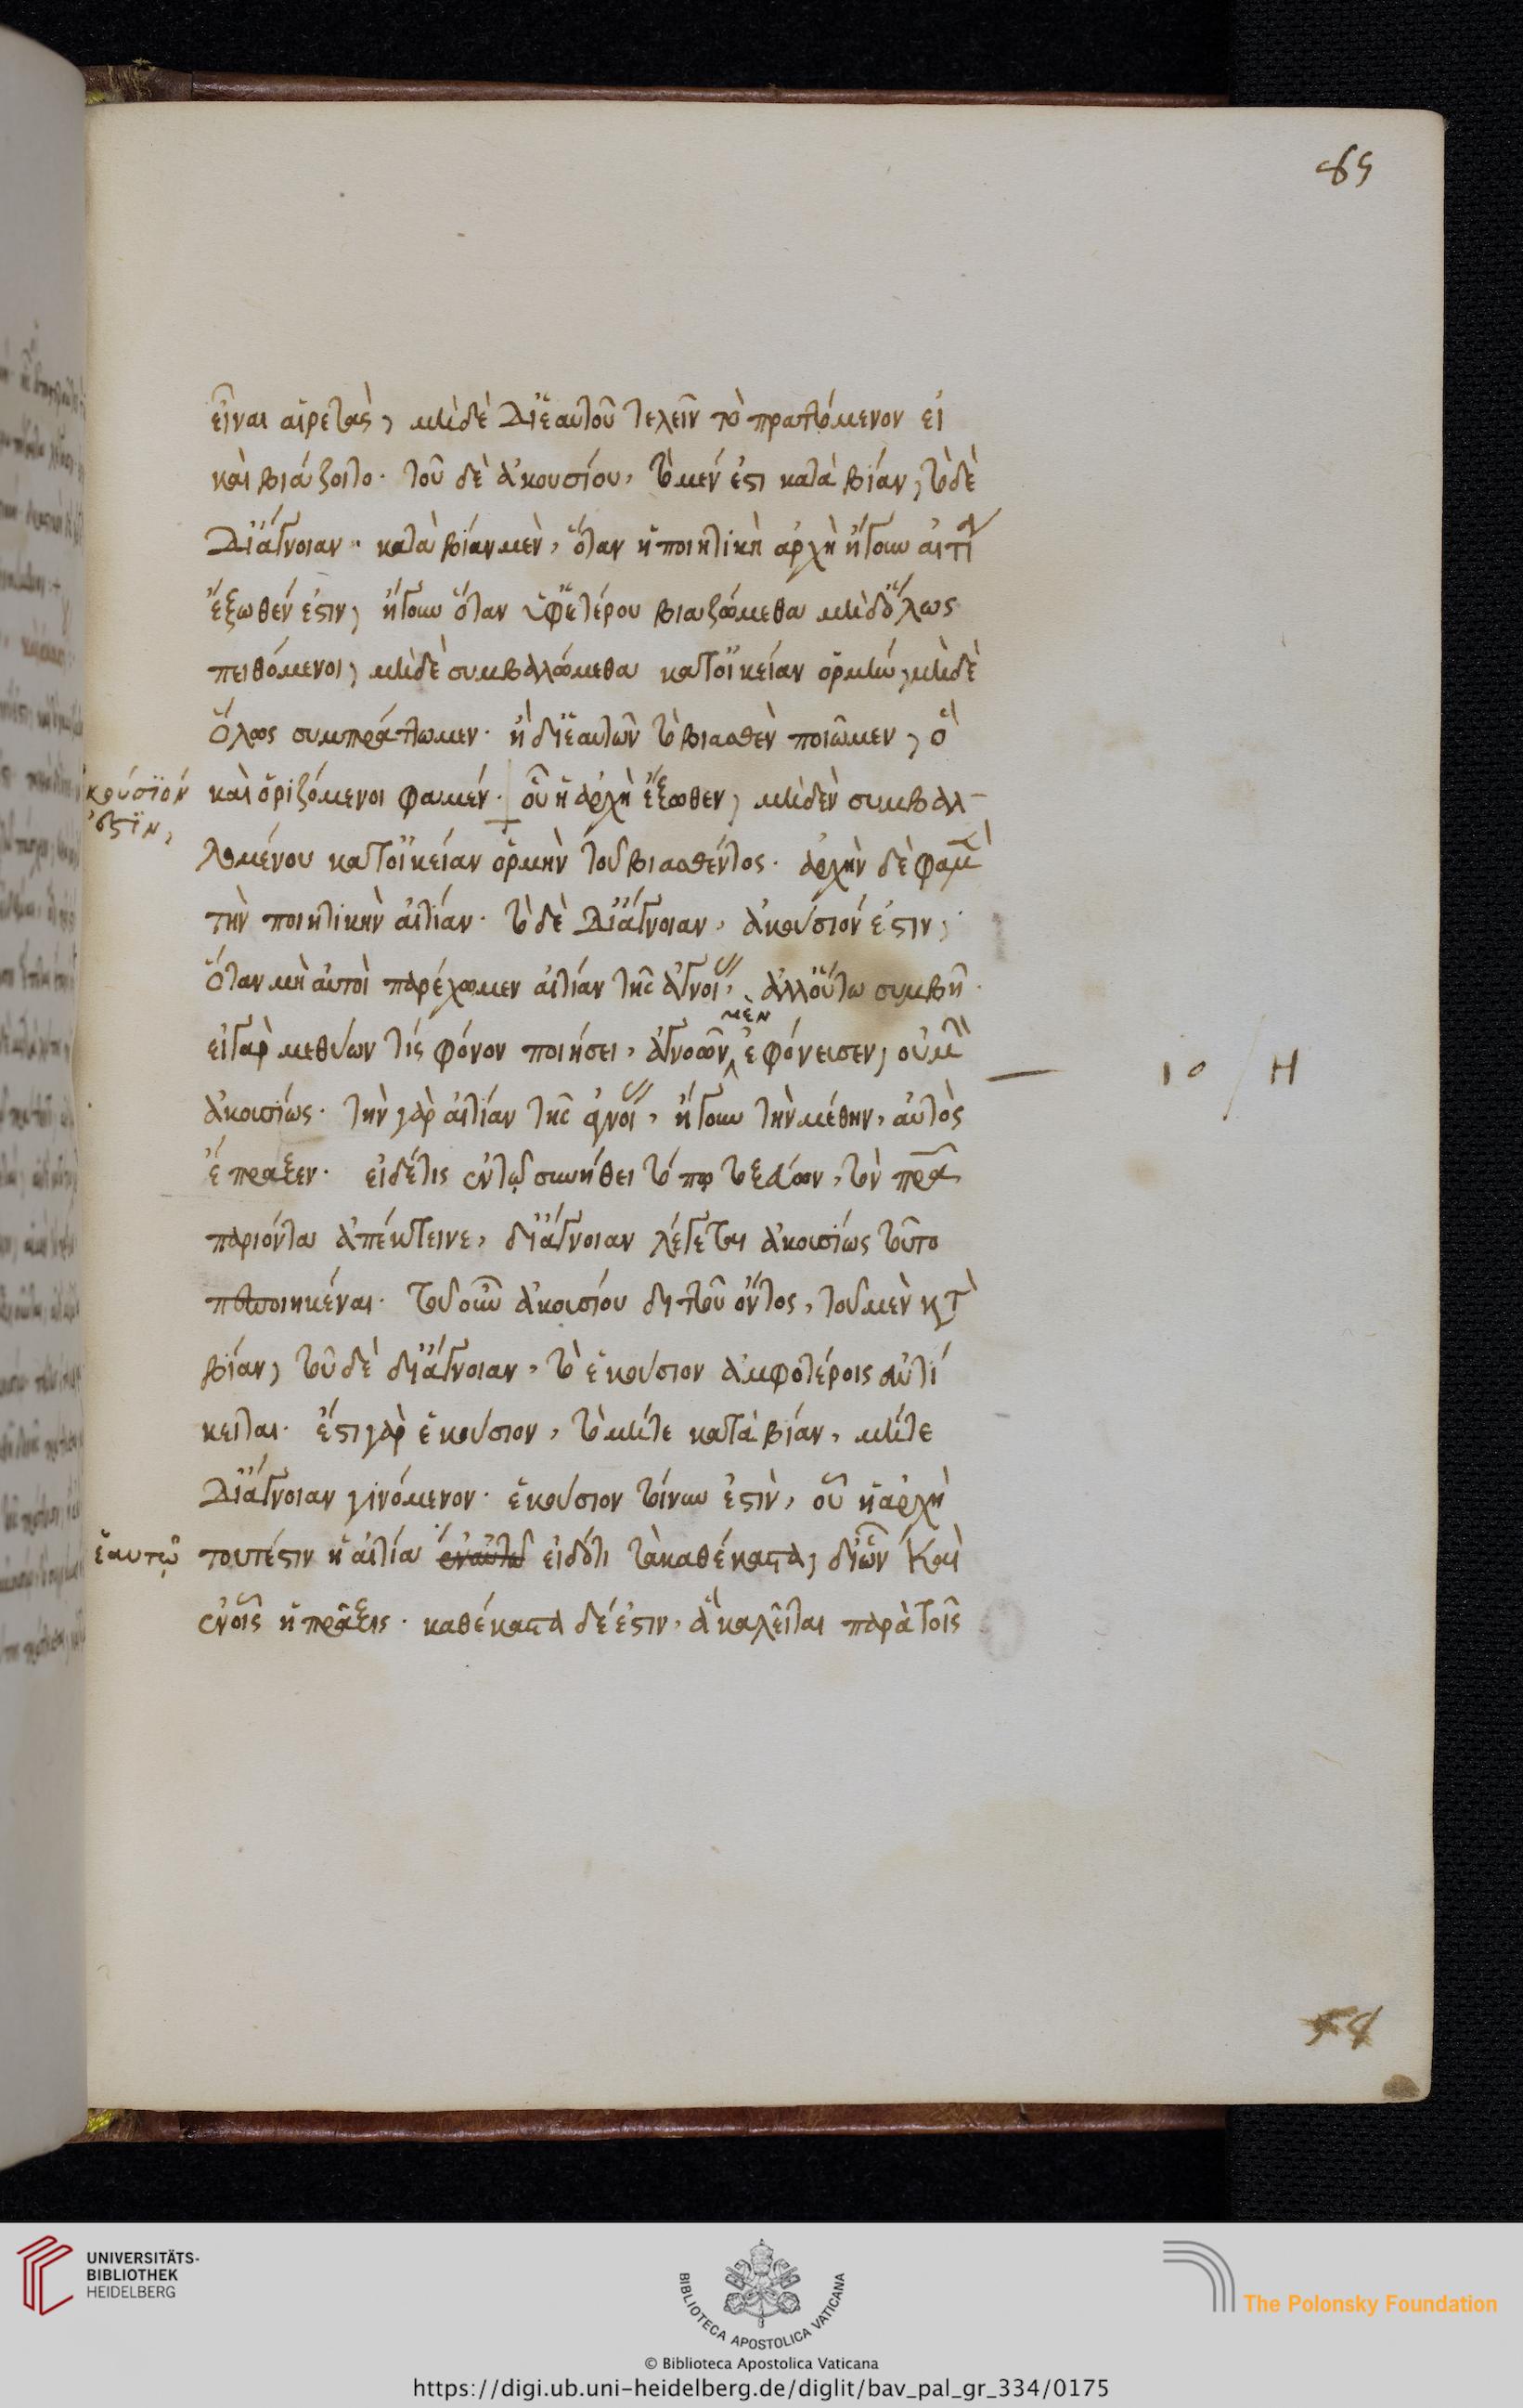 85
εἶναι αἱρετὰς, μηδὲ δι' ἑαυτοῦ τελεῖν τὸ πραττόμενον εἰ
καὶ βιάζοιτο· τοῦ δὲ ἀκουσίου, τὸ μέν ἐστι κατὰ βίαν, τὸ δὲ
δι' ἄγνοιαν· κατὰ βίαν μὲν, ὅταν ἡ ποιητικὴ ἀρχὴ ἤγουν αἰτί
ἔξωθέν ἐστιν, ἤγουν ὅταν ὑφ' ἑτέρου βιαζώμεθα μηδ' ὅλως
πειθόμενοι, μηδὲ συμβαλώμεθα κατ' οἰκείαν ὁρμὴν, μηδὲ
ὅλως συμπράττωμεν· ἢ δι' ἑαυτῶν τὸ βιασθὲν ποιῶμεν, ὃ
καὶ ὁριζόμενοι φαμέν· οὗ ἡ ἀρχὴ ἔξωθεν, μηδὲν συμβαλ-
κούσϊόν
ἐστϊν,
λομένου κατ' οἰκείαν ὁρμὴν τοῦ βιασθέντος· ἀρχὴν δὲ φαμ
τὴν ποιητικὴν αἰτίαν· τὸ δὲ δι' ἄγνοιαν, ἀκούσιόν ἐστιν,
ὅταν μὴ αὐτοὶ παρέχωμεν αἰτίαν τῆς ἀγνοί, ἀλλ' οὕτω συμβῇ·
μὲν
εἰ γὰρ μεθύων τίς φόνον ποιήσει, ἀγνοῶν ἐφόνευσεν, οὐ μ
10 / Η
ἀκουσίως· τὴν γὰρ αἰτίαν τῆς ἀγνοί, ἤγουν τὴν μέθην, αὐτὸς
ἔπραξεν· εἰ δέ τις ἐν τῷ συνήθει τόπῳ τοξεύων, τὸν πρα
παριόντα ἀπέκτεινε, δι' ἄγνοιαν λέγεται ἀκουσίως τοῦτο
πεποιηκέναι· τοῦ οὖν ἀκουσίου διττοῦ ὄντος, τοῦ μὲν κτ
βίαν, τοῦ δὲ δι' ἄγνοιαν, τὸ ἑκούσιον ἀμφοτέροις ἀντί
κειται· ἔστι γὰρ ἑκούσιον, τὸ μήτε κατὰ βίαν, μήτε
δι' ἄγνοιαν γινόμενον· ἑκούσιον τοίνυν ἐστὶν, οὗ ἡ ἀρχὴ
ἑαυτῷ
τουτέστιν ἡ αἰτία ἐν αὐτῷ εἰδότι τὰ καθέκαστα, δι' ὧν καὶ
ἐν οἷς ἡ πρᾶξις· καθέκαστα δέ ἐστιν, ἃ καλεῖται παρὰ τοῖς
UNIVERSITÄTS-
BIBLIOTHEK
HEIDELBERG
BIBLIOTECA APOSTOLICA VATICANA
The Polonsky Foundation
© Biblioteca Apostolica Vaticana
https://digi.ub.uni-heidelberg.de/diglit/bav_pal_gr_334/0175